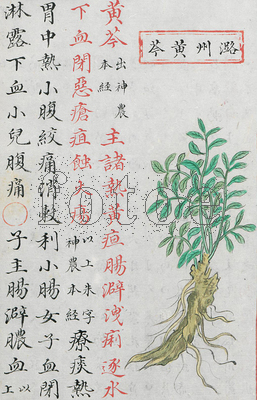 潞州黃芩
黃芩 出神農本經 主諸熱黃疸腸澼洩痢逐水
下血閉惡瘡疽蝕火瘍 以上朱字神農本經 療痰熱
胃中熱小腹絞痛消穀利小腸女子血閉
淋露下血小兒腹痛 子主腸澼膿血 以上